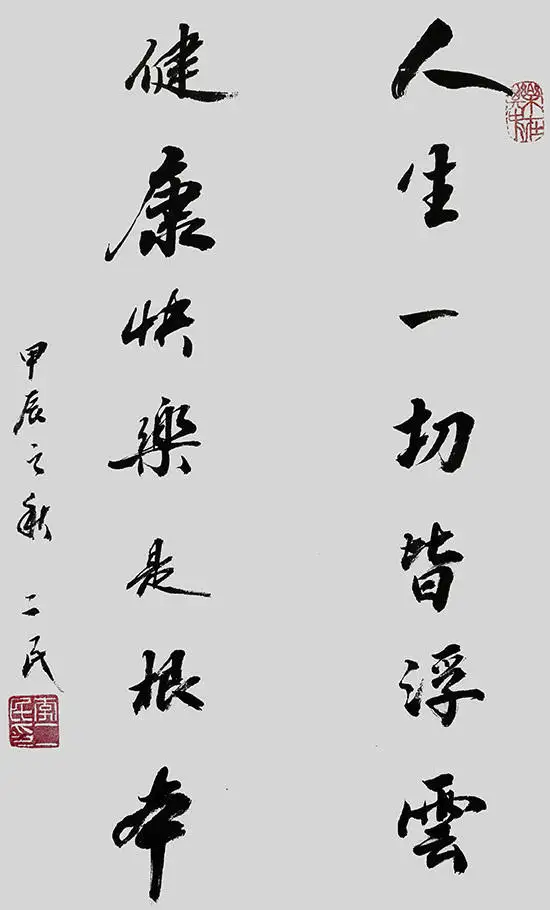 人生一切皆浮雲
健康快樂是根本
甲辰之秋 二民